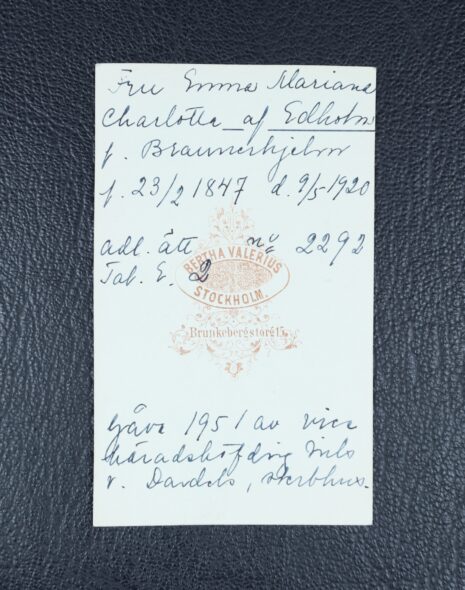 Fru Emma Mariana
Charlotta af Edholm
f. Braunerhjelm
f. 23/2 1847 d. 9/5-1920
adl. ätt nº 2292
Tab. E. 2
BERTHA VALERIUS
STOCKHOLM.
Brunkebergstorg 15.
Gåva 1951 av vice
häradshöfding Nils
v. Dardels, sterbhus.